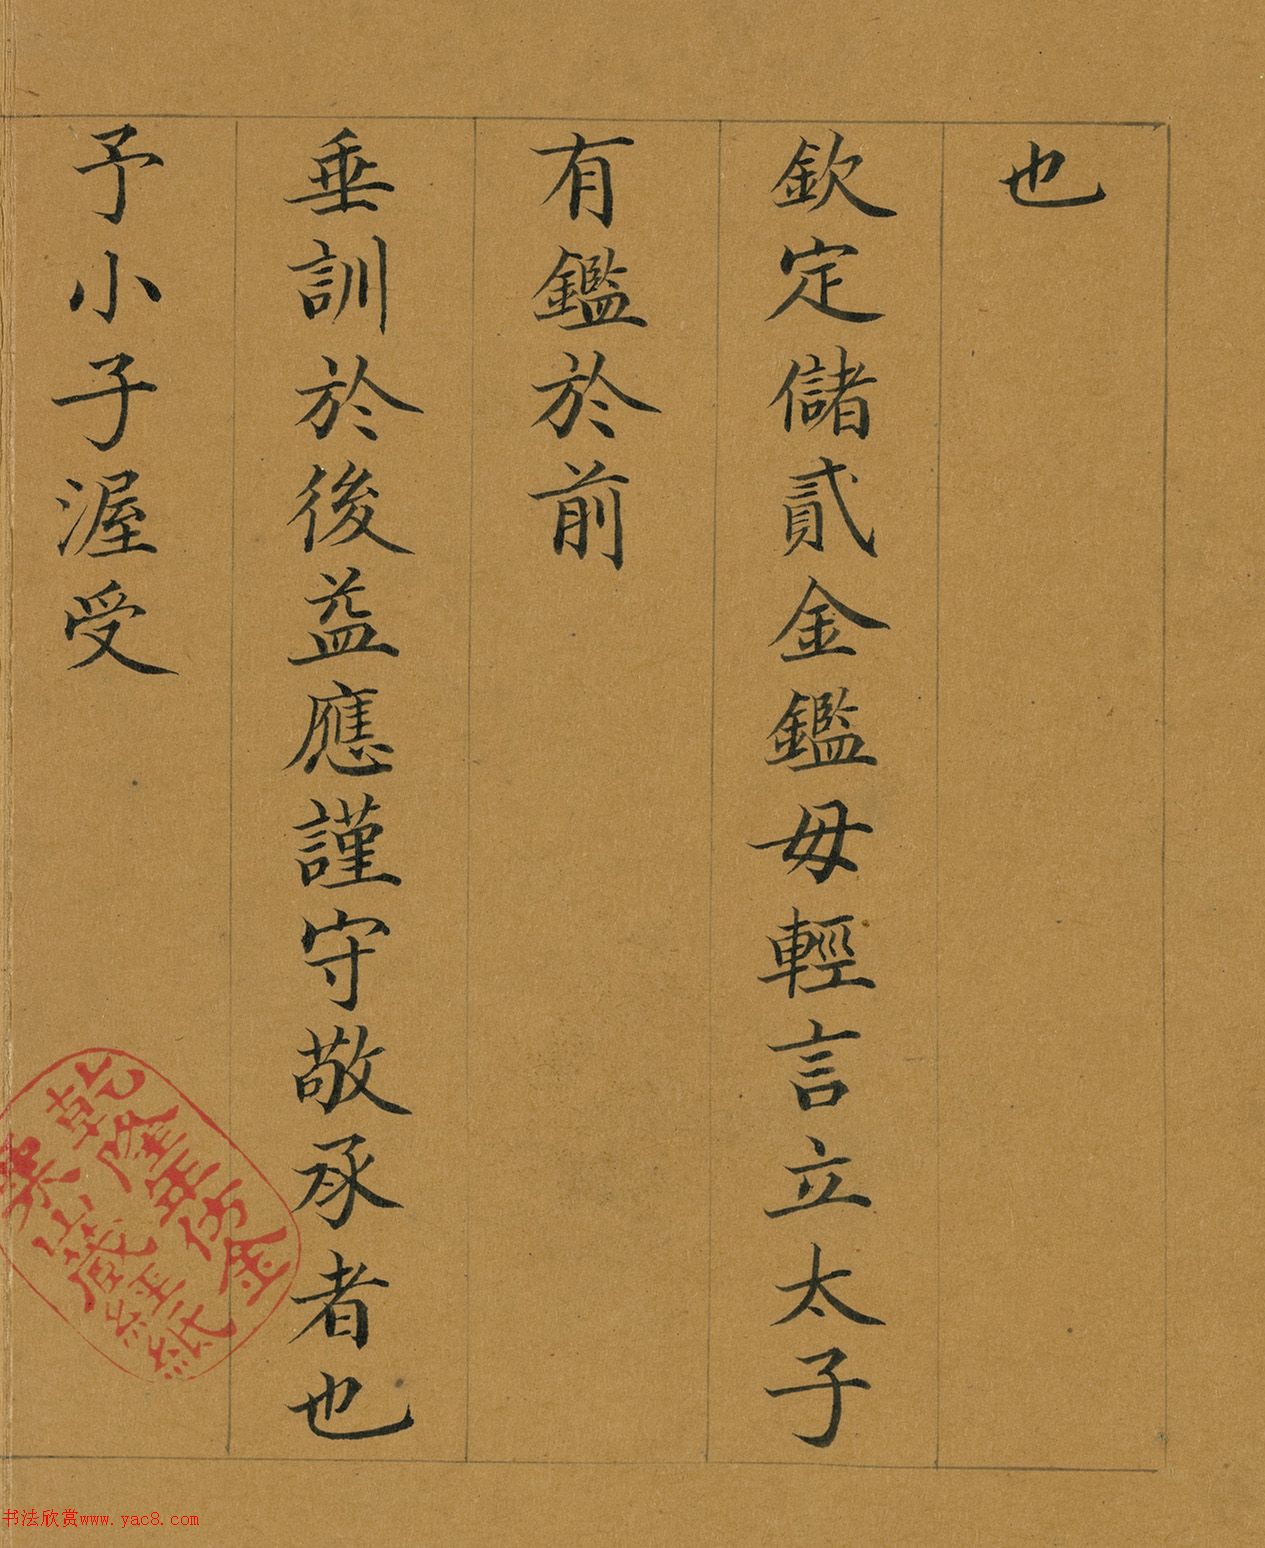 也
欽定儲貳金鑑毋輕言立太子
有鑑於前
垂訓於後益應謹守敬承者也
予小子渥受
乾隆年仿金
粟山藏經紙
书法欣赏www.yac8.com